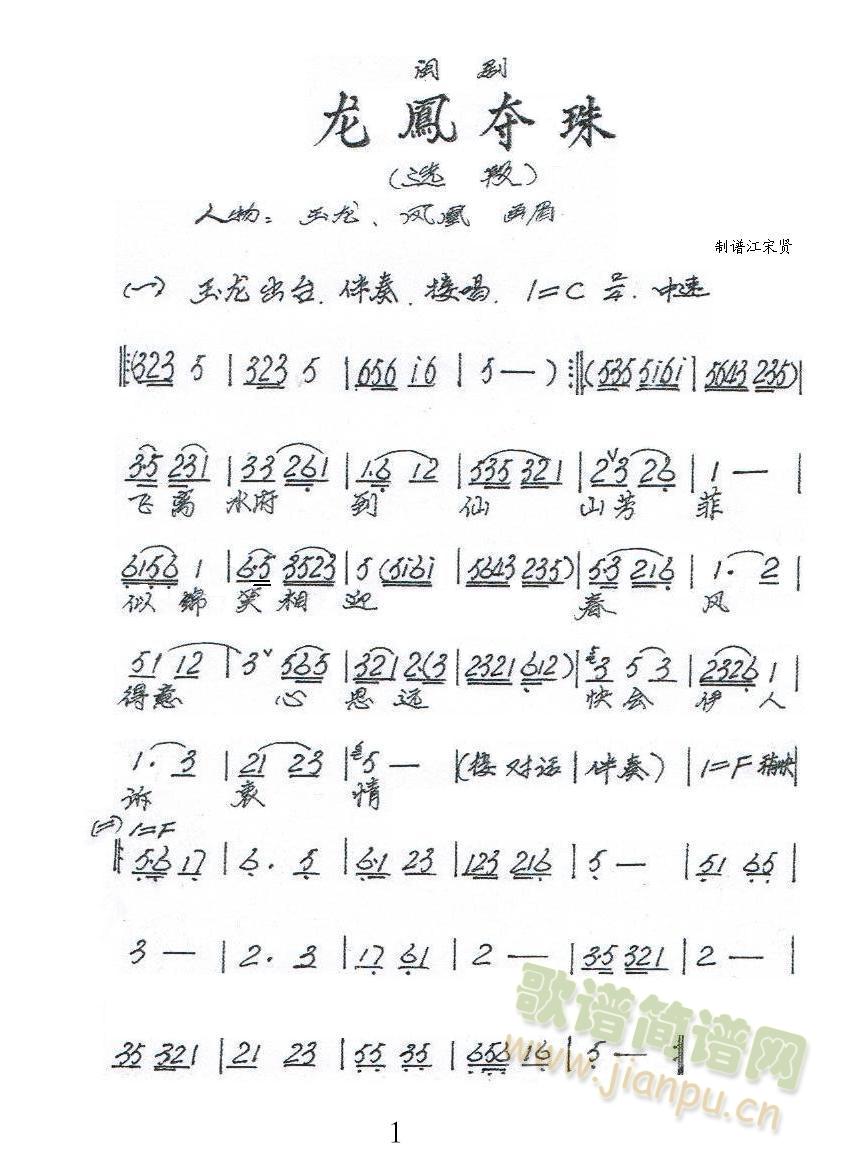 闽 剧
龙 鳳 夺 珠
(选 段)
人物: 玉龙、凤凰 画眉
制谱江宋贤
(一) 玉龙出台.伴奏.接唱. 1=C 2/4 中速
𝄆(323 5 | 323 5 | 656 i6 | 5 — ) 𝄇(535 5i6i | 5643 235) |
3·5 231 | 33 261 | 1·6 12 | 535 321 | 2 3 26 | 1 — |
飞离 水府 到 仙 山芳 菲
6156 1 | 6·5 3523 | 5 (5i6i | 5643 235) | 5·3 216 | 1· 2 |
似锦 笑相 迎 春 风
51 12 | 3 565 | 321 2·(3 | 2321 612) | 3 5 3 | 2326 1 |
得意 心 思 远 快会 伊 人
1· 3 | 21 23 | 5 — | (接对话 | 伴奏) | 1=F 稍快 |
诉 衷 情
(二) 1=F
5·6 17 | 6· 5 | 6·1 23 | 123 216 | 5 — | 51 65 |
3 — | 2· 3 | 17 61 | 2 — | 3·5 321 | 2 — |
35 321 | 21 23 | 55 35 | 656 16 | 5 — 𝄇
歌谱简谱网
www.jianpu.cn
1